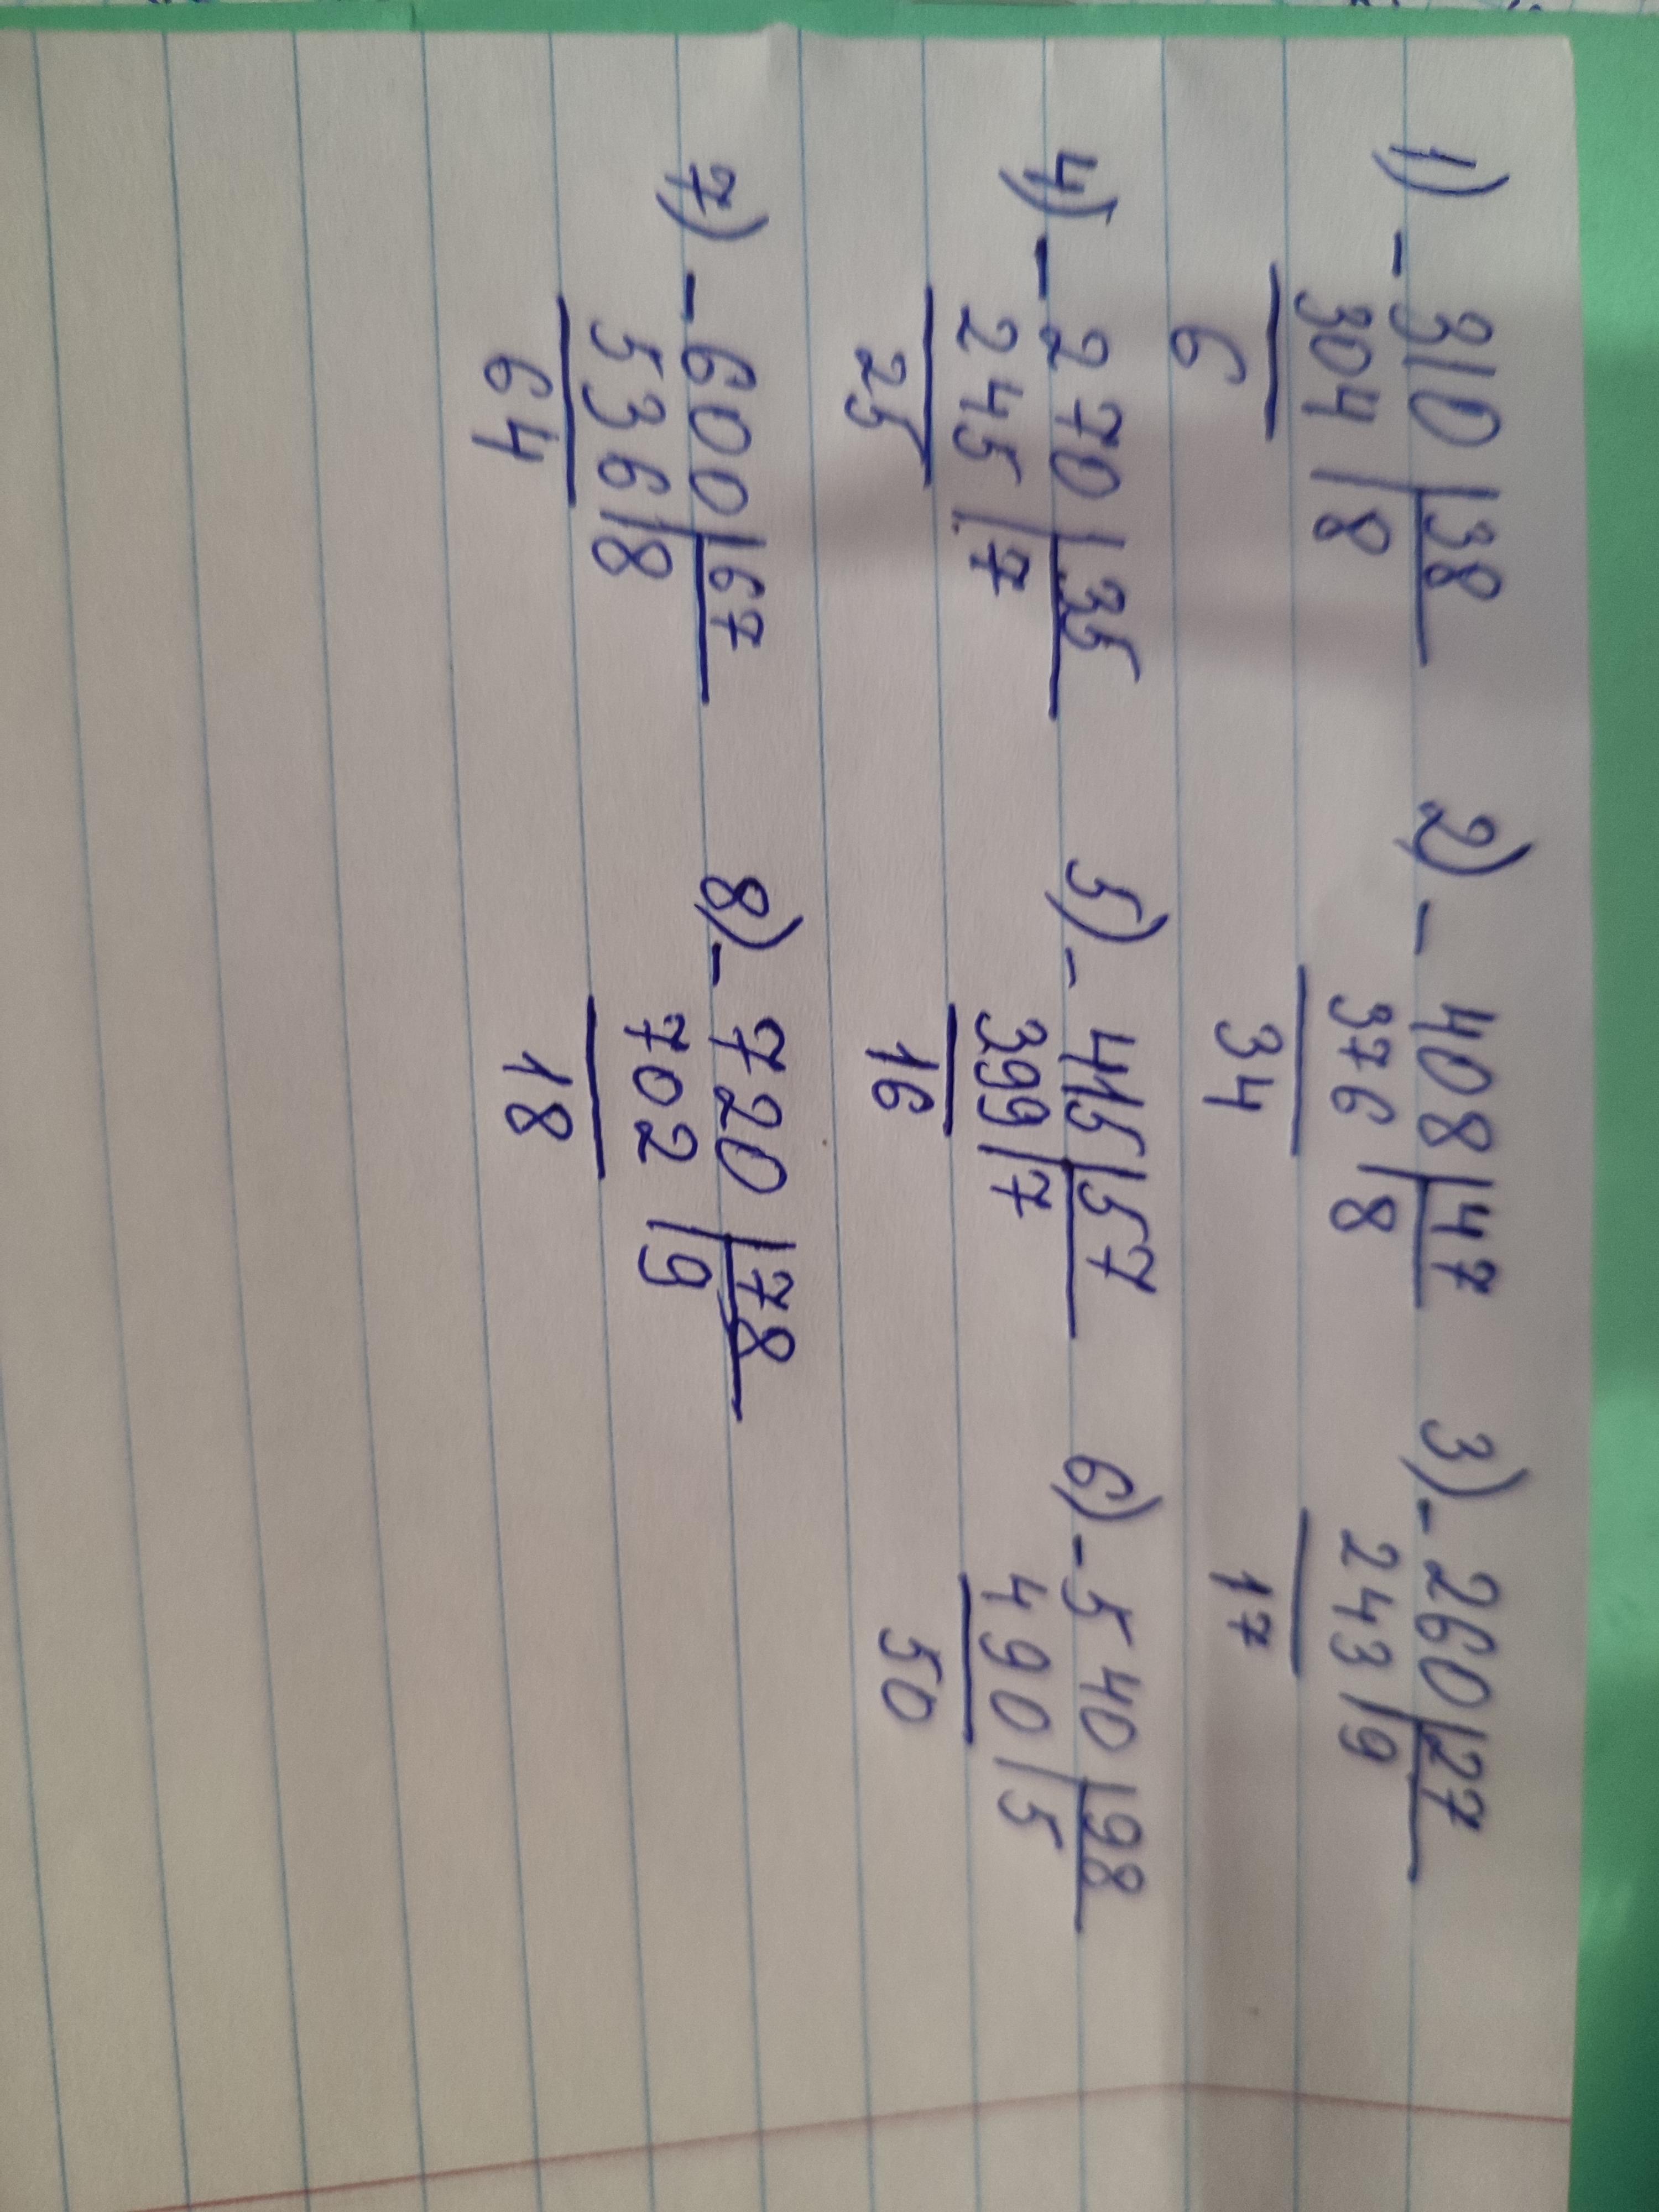 1) - 310 | 38 2) - 408 | 47 3) - 260 | 27
304 | 8 376 | 8 243 | 9
6 34 17
4) - 270 | 35 5) - 415 | 57 6) - 540 | 98
245 | 7 399 | 7 490 | 5
25 16 50
7) - 600 | 67 8) - 720 | 78
536 | 8 702 | 9
64 18